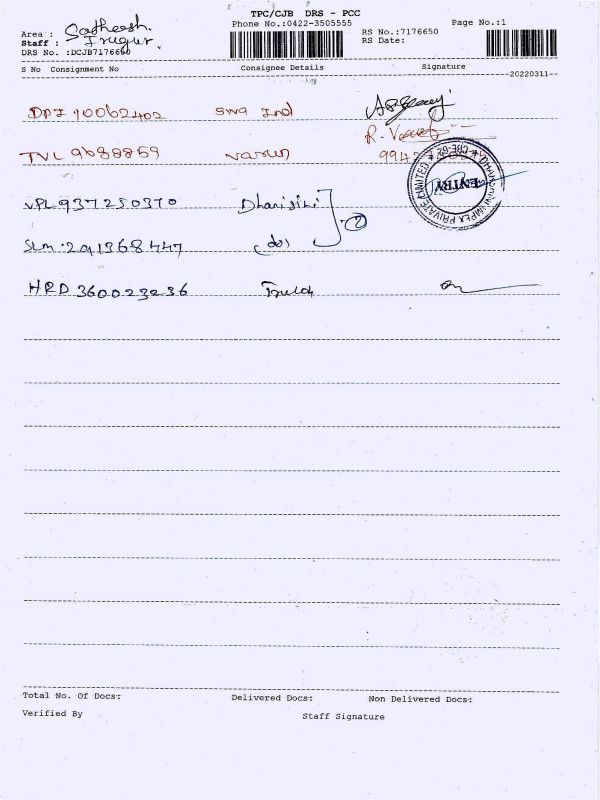 TPC/CJB DRS - PCC
Phone No.:0422-3505555
Page No.:1
Area : Satheesh.
Staff : Irugur.
DRS No. :DCJB7176650
RS No.:7176650
RS Date:
S No Consignment No Consignee Details Signature
--20220311--
DPJ 10062402 Swa Ind
R.
TVL 9688859 Varun 994
VPL 937250370 Dharisini
2
SLM 291368447 (do)
HRD 360023236
DHARISINI IMPEX PRIVATE LIMITED * CBE-62 *
ENTRY
Total No. Of Docs: Delivered Docs: Non Delivered Docs:
Verified By Staff Signature